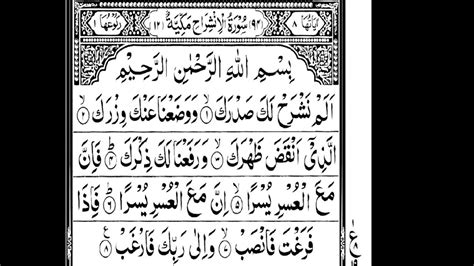 اٰیاتها ٨ (٩٤) سُوْرَةُ الْاِنْشِرَاحِ مَكِّيَّةٌ (١٢) ركوعها ١
بِسْمِ اللهِ الرَّحْمٰنِ الرَّحِيْمِ
اَلَمْ نَشْرَحْ لَكَ صَدْرَكَ ۙ﴿١﴾ وَوَضَعْنَا عَنْكَ وِزْرَكَ ۙ﴿٢﴾
الَّذِیْۤ اَنْقَضَ ظَهْرَكَ ۙ﴿٣﴾ وَرَفَعْنَا لَكَ ذِكْرَكَ ؕ﴿٤﴾ فَاِنَّ
مَعَ الْعُسْرِ يُسْرًا ۙ﴿٥﴾ اِنَّ مَعَ الْعُسْرِ يُسْرًا ؕ﴿٦﴾ فَاِذَا
فَرَغْتَ فَانْصَبْ ۙ﴿٧﴾ وَاِلٰى رَبِّكَ فَارْغَبْ ﴿٨﴾